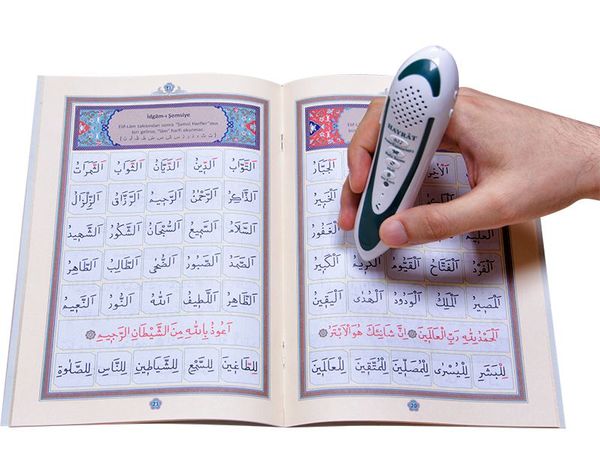 20
Elif-Lâm
اَلْجَبَّارُ
اَلْخَبِيرُ
اَلْغَفُورُ
اَلْفَرْدُ اَلْفَتَّاحُ اَلْقَيُّومُ اَلْكَرِيمُ اَلْكَبِيرُ
اَلْمَصِيرُ اَلْمَلِكُ اَلْوَدُودُ اَلْهُدٰى اَلْيَقِينُ
اَلْحَمْدُ لِلّٰهِ رَبِّ الْعَالَمِينَ اِنَّ شَانِئَكَ هُوَ الْاَبْتَرُ
لِلْبَشَرِ لِلْيُسْرٰى لِلْمُصَلِّينَ لِلْمُتَّقِينَ لِلْعَالَمِينَ
HAYRAT
İdgâm-ı Şemsiye
Elif-Lâm takısından sonra "Şemsî Harfler"den
biri gelirse, "lâm" harfi okunmaz.
اَلتَّوَّابُ اَلدِّينُ اَلدَّيَّانُ اَلثَّوَابُ اَلثَّمَرَاتُ
اَلذَّاكِرُ اَلرَّحْمٰنُ اَلرَّحِيمُ اَلرَّزَّاقُ اَلزِّلْزَالُ
اَلسَّلَامُ اَلسَّمِيعُ اَلسُّبْحَانُ اَلشَّكُورُ اَلشَّهِيدُ
اَلصَّمَدُ اَلصَّبُورُ اَلضُّحٰى اَلطَّالِبُ اَلطَّاهِرُ
اَلظَّاهِرُ اَللَّطِيفُ اَللّٰهُ اَلنُّورُ اَلنَّعِيمُ
اَعُوذُ بِاللّٰهِ مِنَ الشَّيْطَانِ الرَّجِيمِ
لِلطَّاغِينَ لِلسَّبْعِ لِلشَّيَاطِينِ لِلنَّاسِ لِلصَّلٰوةِ
21